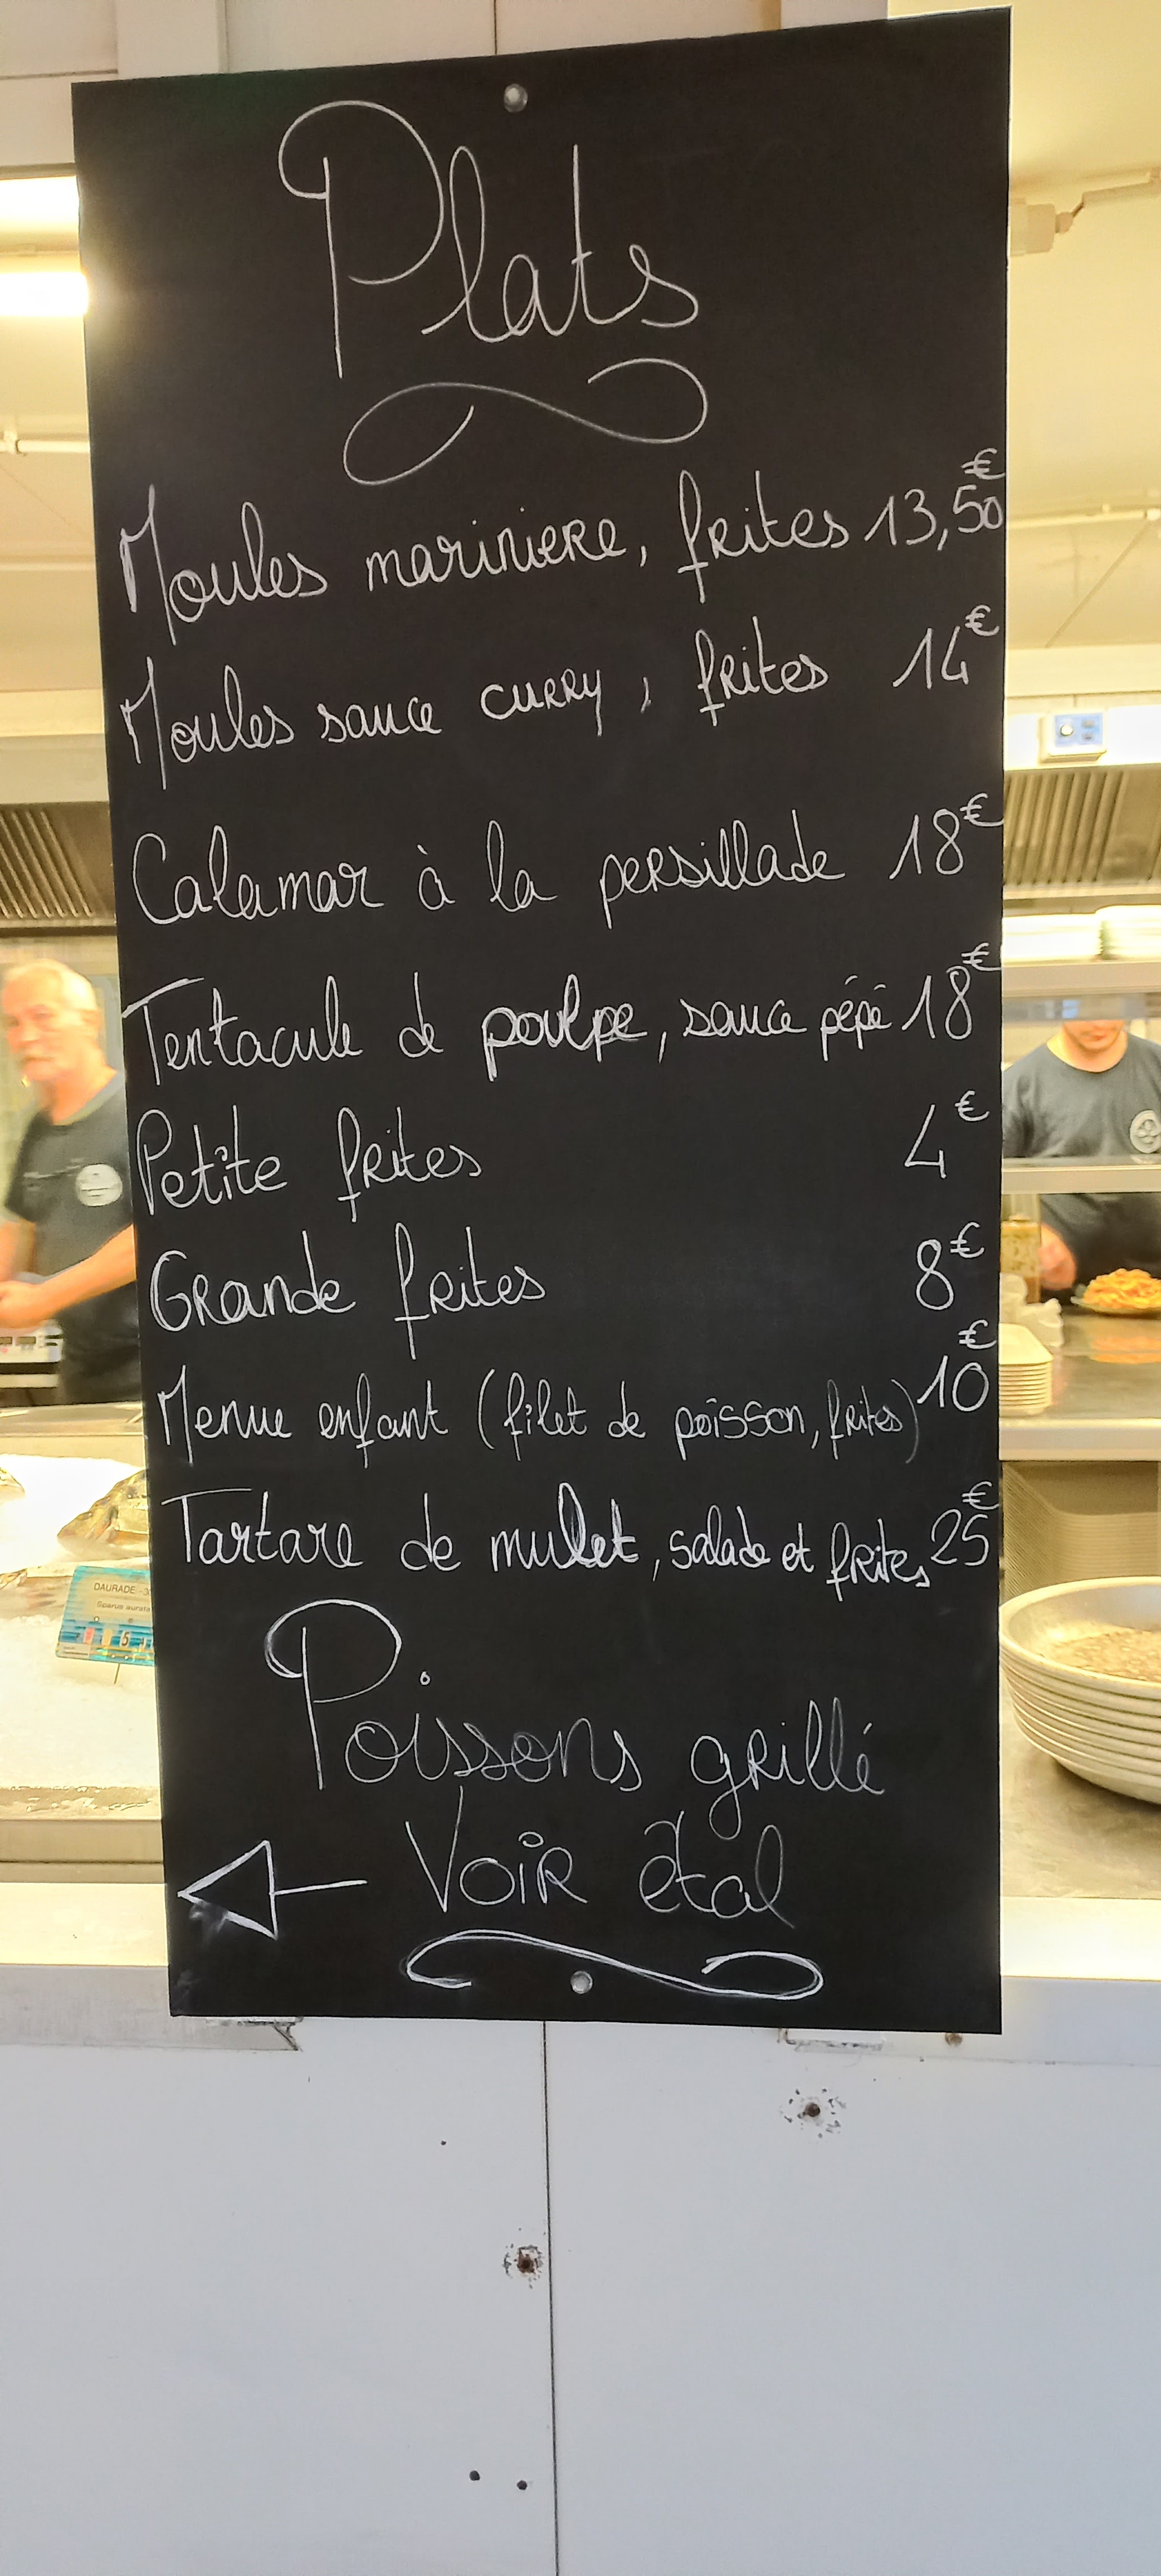 Plats
Moules mariniere, frites 13,50€
Moules sauce curry, frites 14€
Calamar à la persillade 18€
Tentacule de poulpe, sauce pépé 18€
Petite frites 4€
Grande frites 8€
Menue enfant (filet de poisson, frites) 10€
Tartare de mulet, salade et frites 25€
Poissons grillé
Voir étal
DAURADE
Sparus aurata